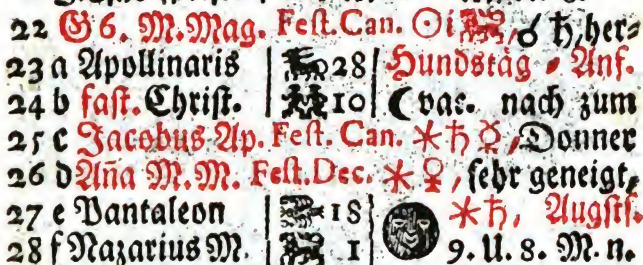 22 G 6. M. Mag. Fest. Can. ☉ i ☌ ♄, her⸗
23 a Apollinaris 28 Hundstäg ⸗ Anf.
24 b fast. Christ. 10 ☾ vac. nach zum
25 c Jacobus Ap. Fest. Can. ⚹ ♄ ☿, Donner
26 d Aña M. M. Fest. Dec. ⚹ ♀, sehr geneigt,
27 e Pantaleon 18 ⚹ ♄, Augsts⸗
28 f Nazarius M. 1 9. U. 8. M. n.